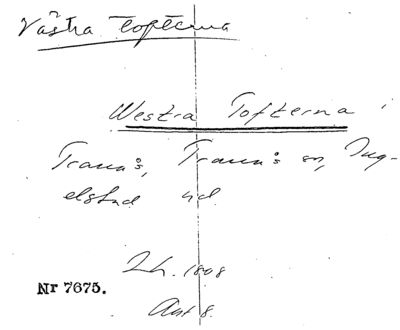 Västra Tofterna
Westra Tofterna i
Tranås, Tranås sn, Ing-
elstad hd.
Lh. 1808
Nr 7675.
Akt 8.